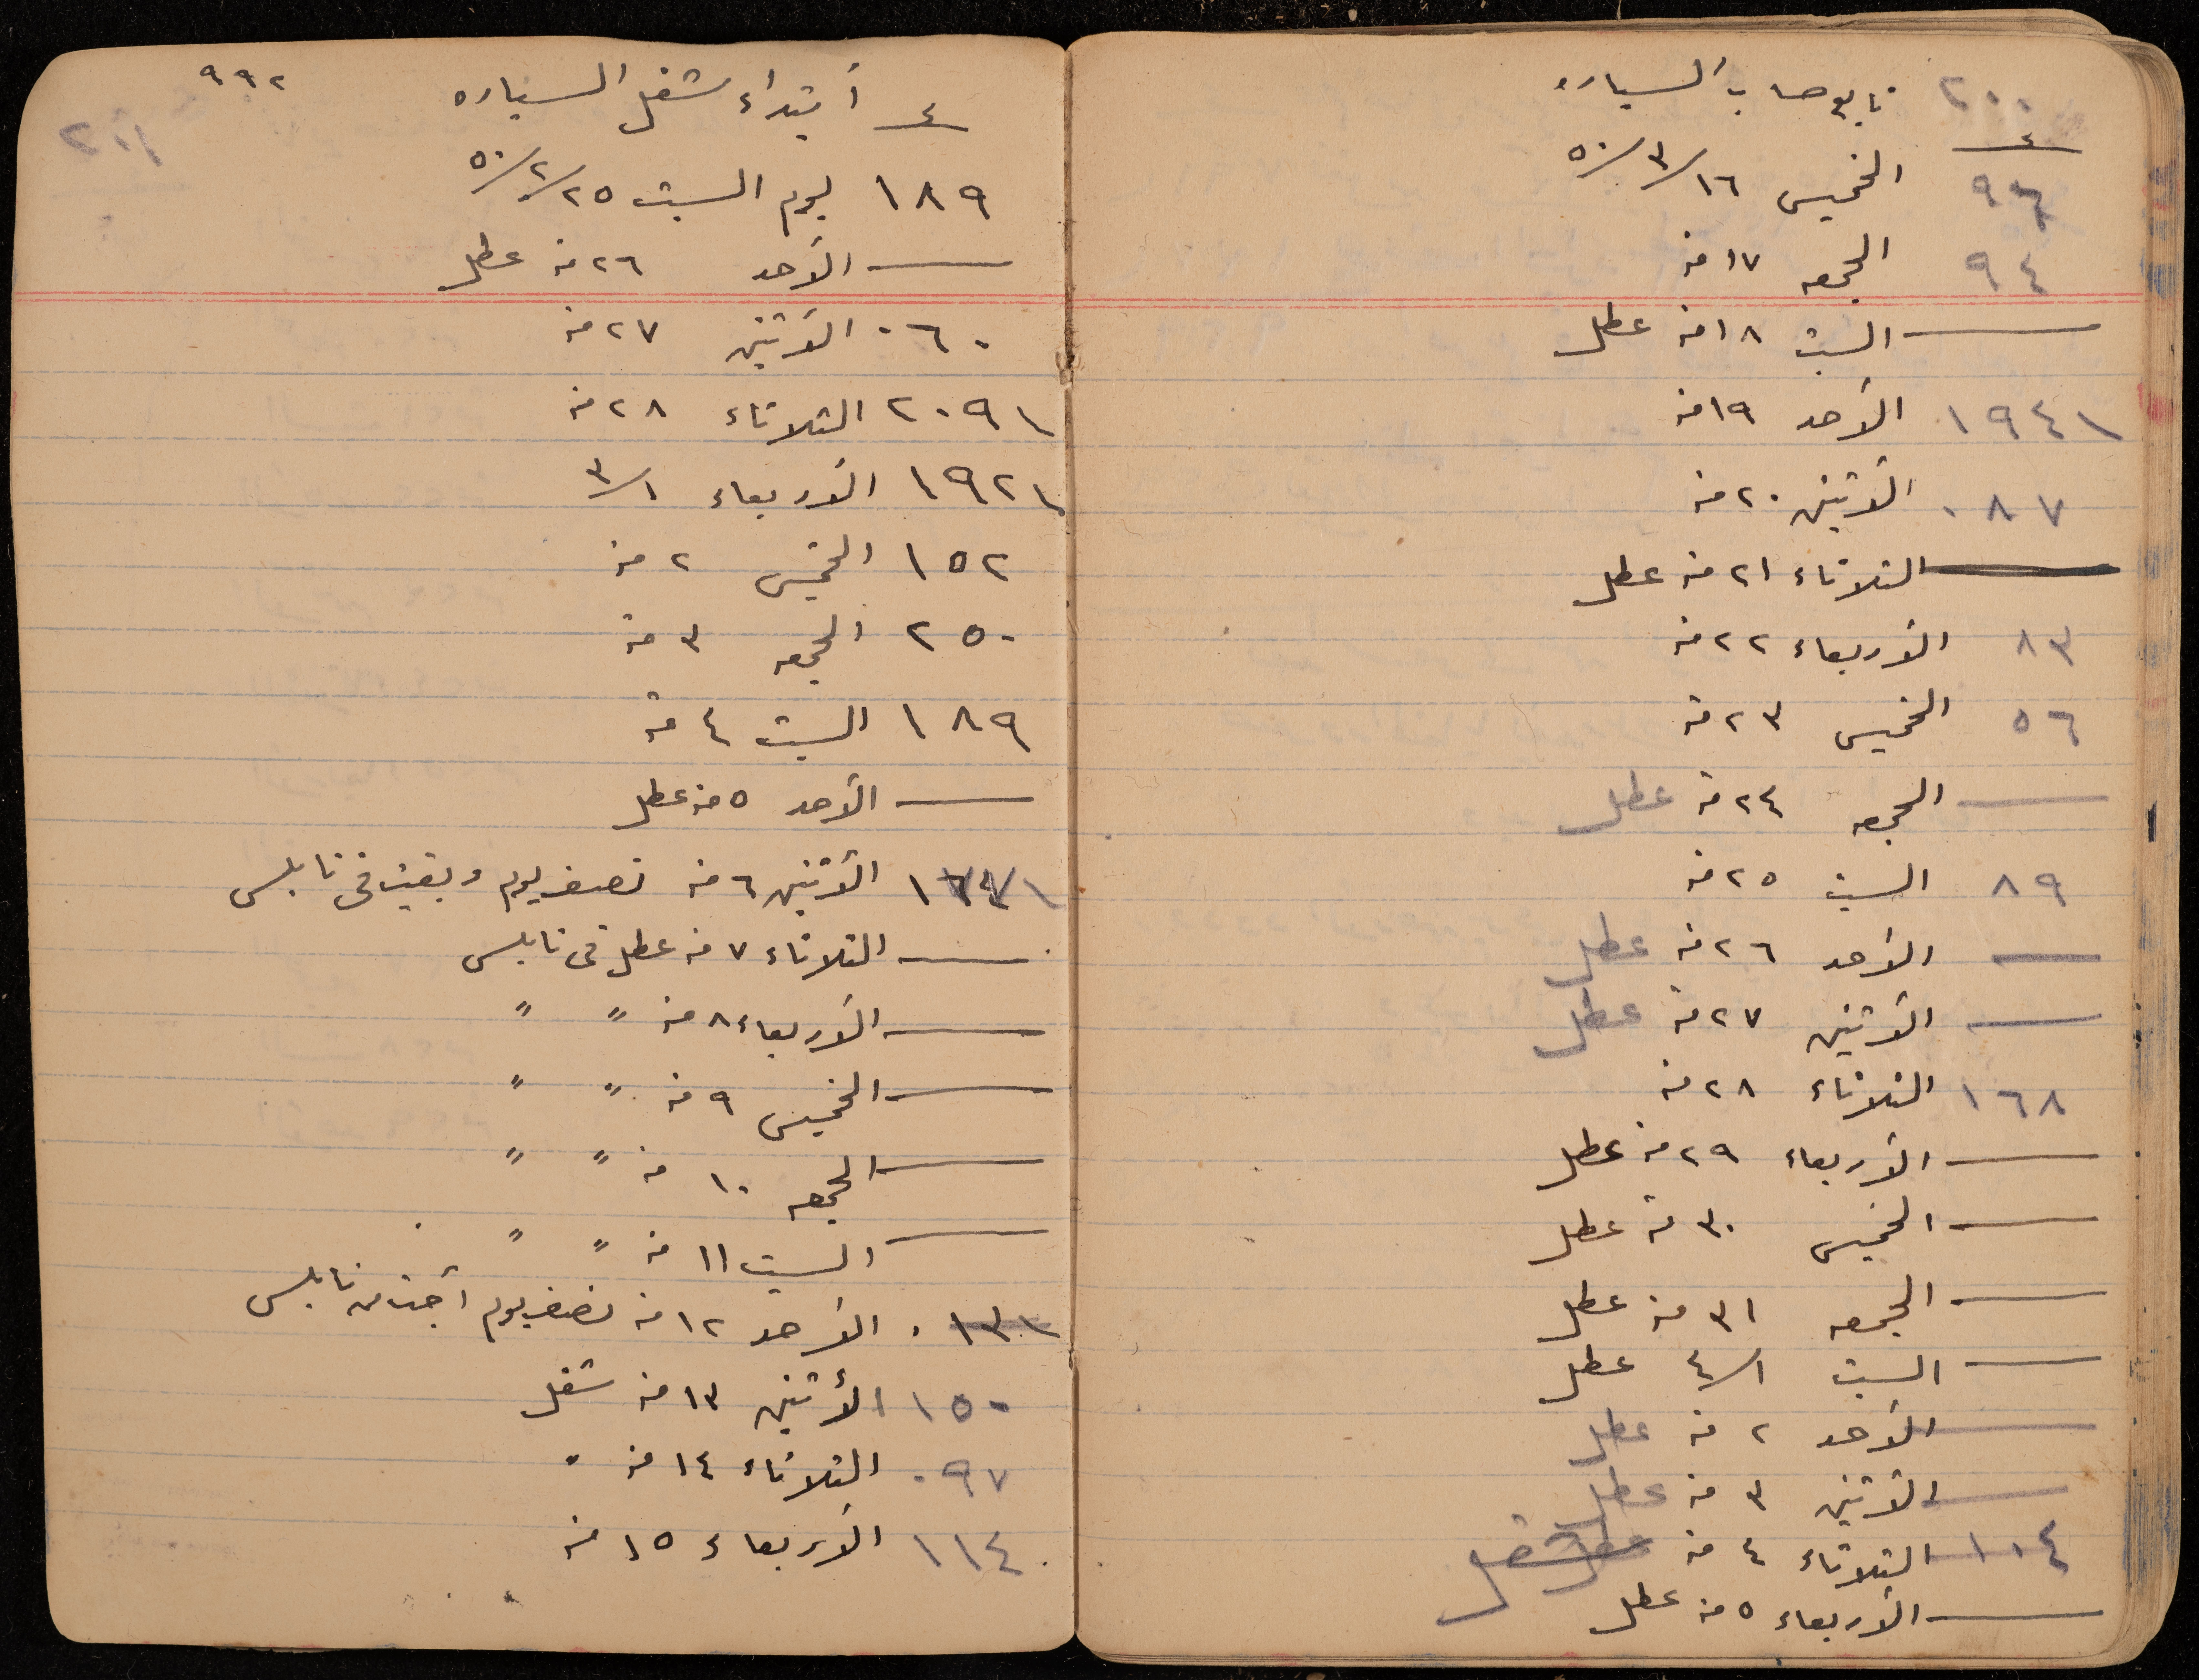 ٢٠٠
تابع حساب السياره
٤
٩٦ الخميس ١٦/٣/٥٠
٩٤ الجمعه ١٧ منه
— السبت ١٨ منه عطل
١٩٤١ الأحد ١٩ منه
٠٨٧ الأثنين ٢٠ منه
— الثلاثاء ٢١ منه عطل
٨٣ الأربعاء ٢٢ منه
٥٦ الخميس ٢٣ منه
— الجمعه ٢٤ منه عطل
٨٩ السبت ٢٥ منه
— الأحد ٢٦ منه عطل
— الأثنين ٢٧ منه عطل
١٦٨ الثلاثاء ٢٨ منه
— الأربعاء ٢٩ منه عطل
— الخميس ٣٠ منه عطل
— الجمعه ٣١ منه عطل
— السبت ١/٤ عطل
— الأحد ٢ منه عطل
— الأثنين ٣ منه عطل
١٠٤ الثلاثاء ٤ منه شغل
— الأربعاء ٥ منه عطل
٢٠١
٩٩٢
٤ أبتداء شغل السياره
١٨٩ يوم السبت ٢٥/٢/٥٠
— الأحد ٢٦ منه عطل
٠٦٠ الأثنين ٢٧ منه
٢٠٩١ الثلاثاء ٢٨ منه
١٩٢١ الأربعاء ١/٣
١٥٢ الخميس ٢ منه
٢٥٠ الجمعه ٣ منه
١٨٩ السبت ٤ منه
— الأحد ٥ منه عطل
الأثنين ٦ منه نصف يوم وبقيت في نابلس
— الثلاثاء ٧ منه عطل في نابلس
— الأربعاء ٨ منه " "
— الخميس ٩ منه " "
— الجمعه ١٠ منه " "
— السبت ١١ منه " "
٠١٣١ الأحد ١٢ منه نصف يوم أجت من نابلس
١٥٠ الأثنين ١٣ منه شغل
٠٩٧ الثلاثاء ١٤ منه "
١١٤ الأربعاء ١٥ منه